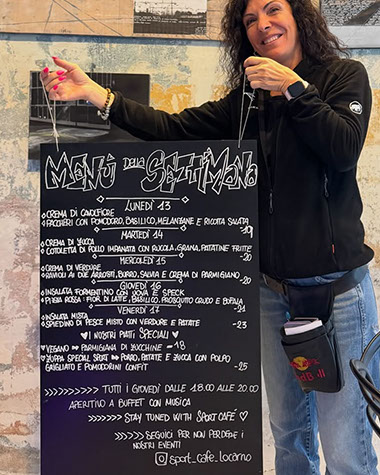 MENÙ DELLA SETTIMANA
LUNEDÌ 13
CREMA DI CAVOLFIORE
PACCHERI CON POMODORO, BASILICO, MELANZANE E RICOTTA SALATA
-19
MARTEDÌ 14
CREMA DI ZUCCA
COTOLETTA DI POLLO IMPANATA CON RUCOLA, GRANA, PATATINE FRITTE
-20
MERCOLEDÌ 15
CREMA DI VERDURE
RAVIOLI AI DUE ARROSTI, BURRO, SALVIA E CREMA DI PARMIGIANO
-20
GIOVEDÌ 16
INSALATA FORMENTINO CON UOVA E SPECK
PINSA ROSSA: FIOR DI LATTE, BASILICO, PROSCIUTTO CRUDO E BUFALA
-21
VENERDÌ 17
INSALATA MISTA
SPIEDINO DI PESCE MISTO CON VERDURE E PATATE -23
♥I NOSTRI PIATTI SPECIALI♥
VEGANO >> PARMIGIANA DI ZUCCHINE -18
ZUPPA SPECIAL SPORT >> PORRO, PATATE E ZUCCA CON POLPO
GRIGLIATO E POMODORINI CONFIT -25
>>>>>>>>>> TUTTI I GIOVEDÌ DALLE 18.00 ALLE 20.00
APERITIVO A BUFFET CON MUSICA
>>>>>>> STAY TUNED WITH SPORT CAFÉ ♥
>>>>> SEGUICI PER NON PERDERE I
NOSTRI EVENTI
sport_cafe_locarno